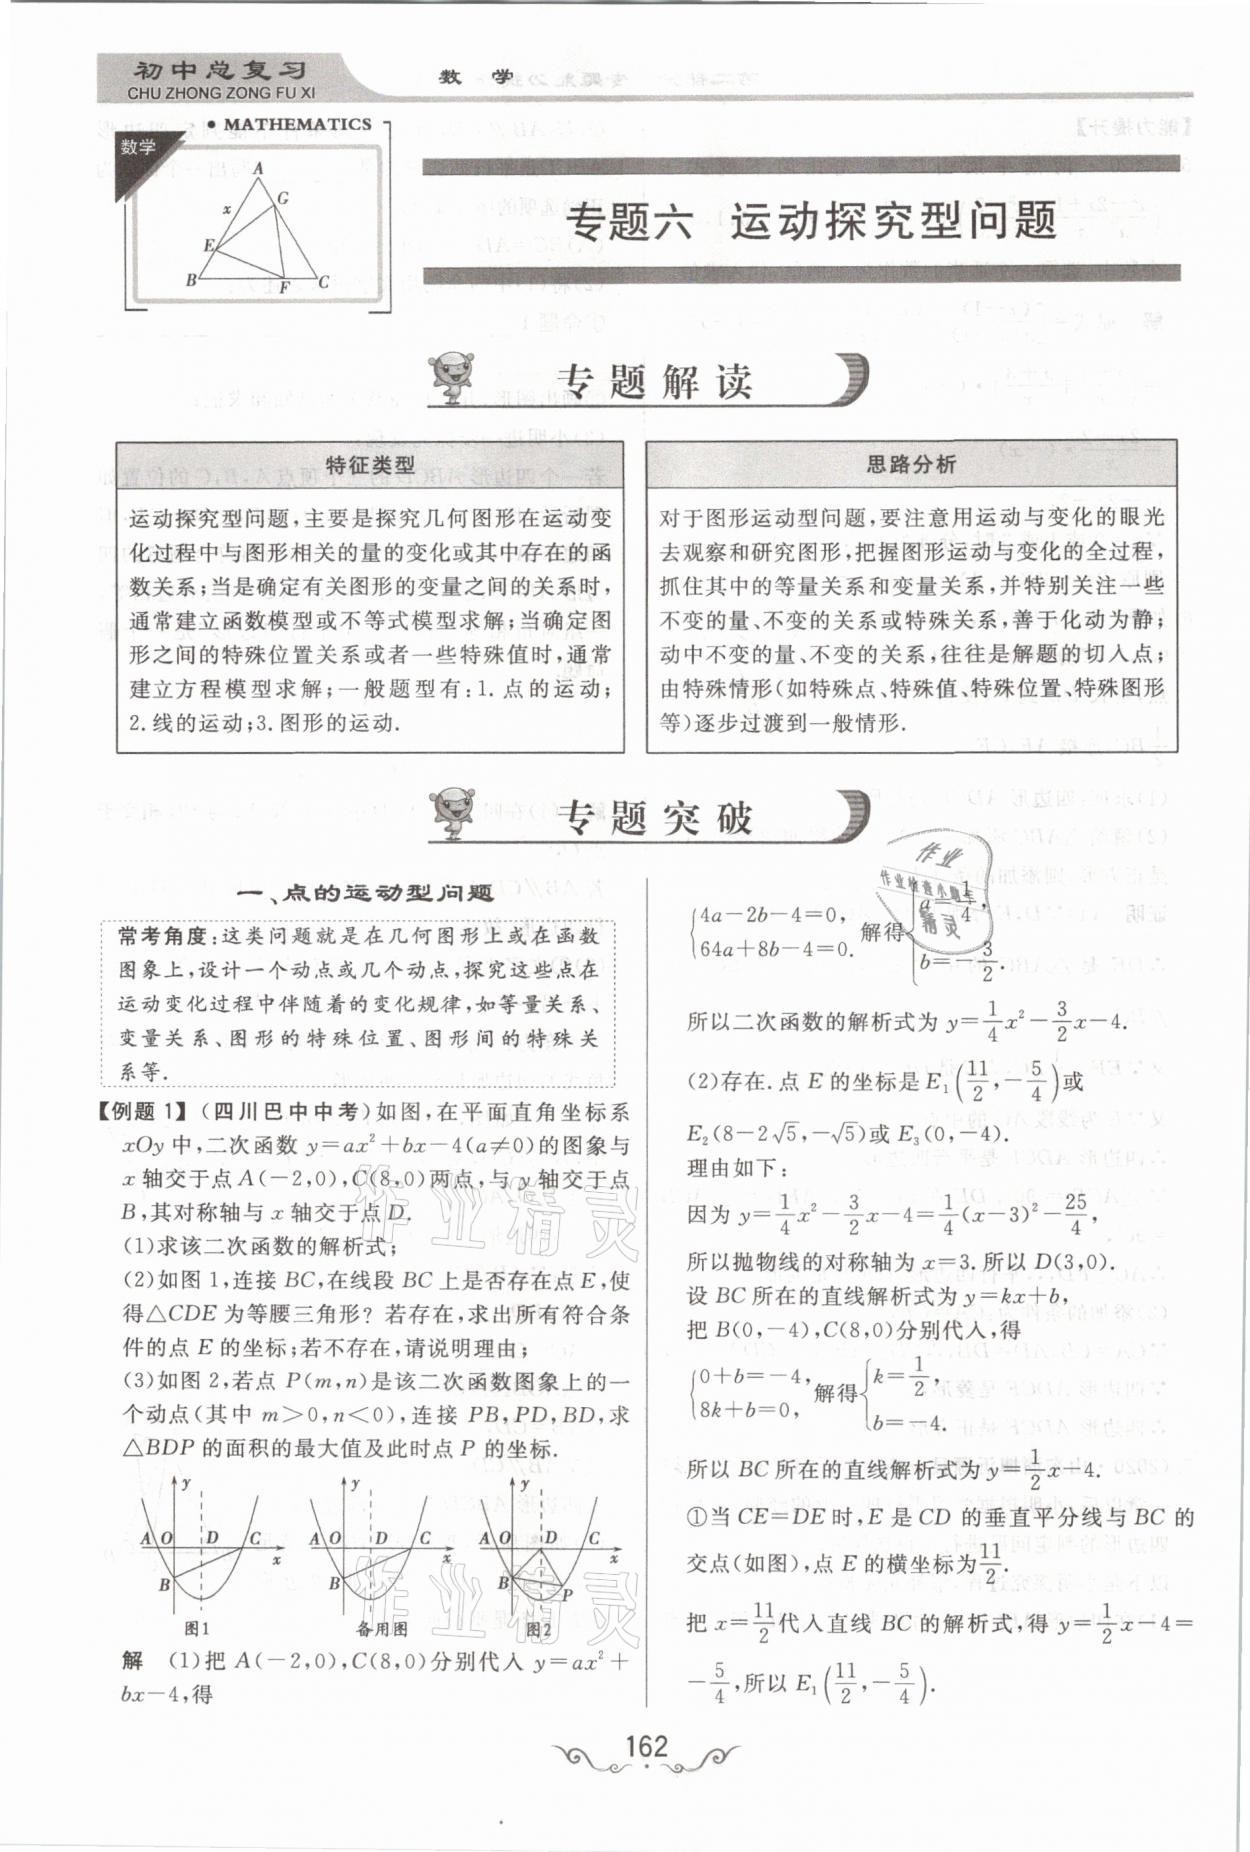 初中总复习
CHU ZHONG ZONG FU XI
数 学
• MATHEMATICS
数学
A
G
x
E
B
F
C
专题六 运动探究型问题
专题解读
特征类型
运动探究型问题,主要是探究几何图形在运动变
化过程中与图形相关的量的变化或其中存在的函
数关系;当是确定有关图形的变量之间的关系时,
通常建立函数模型或不等式模型求解;当确定图
形之间的特殊位置关系或者一些特殊值时,通常
建立方程模型求解;一般题型有:1.点的运动;
2.线的运动;3.图形的运动.
思路分析
对于图形运动型问题,要注意用运动与变化的眼光
去观察和研究图形,把握图形运动与变化的全过程,
抓住其中的等量关系和变量关系,并特别关注一些
不变的量、不变的关系或特殊关系,善于化动为静;
动中不变的量、不变的关系,往往是解题的切入点;
由特殊情形(如特殊点、特殊值、特殊位置、特殊图形
等)逐步过渡到一般情形.
专题突破
一、点的运动型问题
常考角度:这类问题就是在几何图形上或在函数
图象上,设计一个动点或几个动点,探究这些点在
运动变化过程中伴随着的变化规律,如等量关系、
变量关系、图形的特殊位置、图形间的特殊关
系等.
【例题1】(四川巴中中考)如图,在平面直角坐标系
xOy中,二次函数 y=ax²+bx-4(a≠0)的图象与
x轴交于点A(-2,0),C(8,0)两点,与y轴交于点
B,其对称轴与x轴交于点D.
(1)求该二次函数的解析式;
(2)如图1,连接BC,在线段BC上是否存在点E,使
得△CDE为等腰三角形?若存在,求出所有符合条
件的点E的坐标;若不存在,请说明理由;
(3)如图2,若点P(m,n)是该二次函数图象上的一
个动点(其中m>0,n<0),连接PB,PD,BD,求
△BDP的面积的最大值及此时点P的坐标.
y
A O D C
x
B
图1
y
A O D C
x
B
备用图
y
A O D C
x
B
P
图2
解 (1)把A(-2,0),C(8,0)分别代入 y=ax²+
bx-4,得
{4a-2b-4=0, 64a+8b-4=0. 解得{a=1/4, b=-3/2.
所以二次函数的解析式为 y=1/4x²-3/2x-4.
(2)存在.点E的坐标是E₁(11/2,-5/4)或
E₂(8-2√5,-√5)或E₃(0,-4).
理由如下:
因为 y=1/4x²-3/2x-4=1/4(x-3)²-25/4,
所以抛物线的对称轴为x=3.所以D(3,0).
设BC所在的直线解析式为y=kx+b,
把B(0,-4),C(8,0)分别代入,得
{0+b=-4, 8k+b=0, 解得{k=1/2, b=-4.
所以BC所在的直线解析式为y=1/2x-4.
①当CE=DE时,E是CD的垂直平分线与BC的
交点(如图),点E的横坐标为11/2.
把x=11/2代入直线BC的解析式,得y=1/2x-4=
-5/4,所以E₁(11/2,-5/4).
作业
作业检查小助手
精灵
作业精灵
作业精灵
162